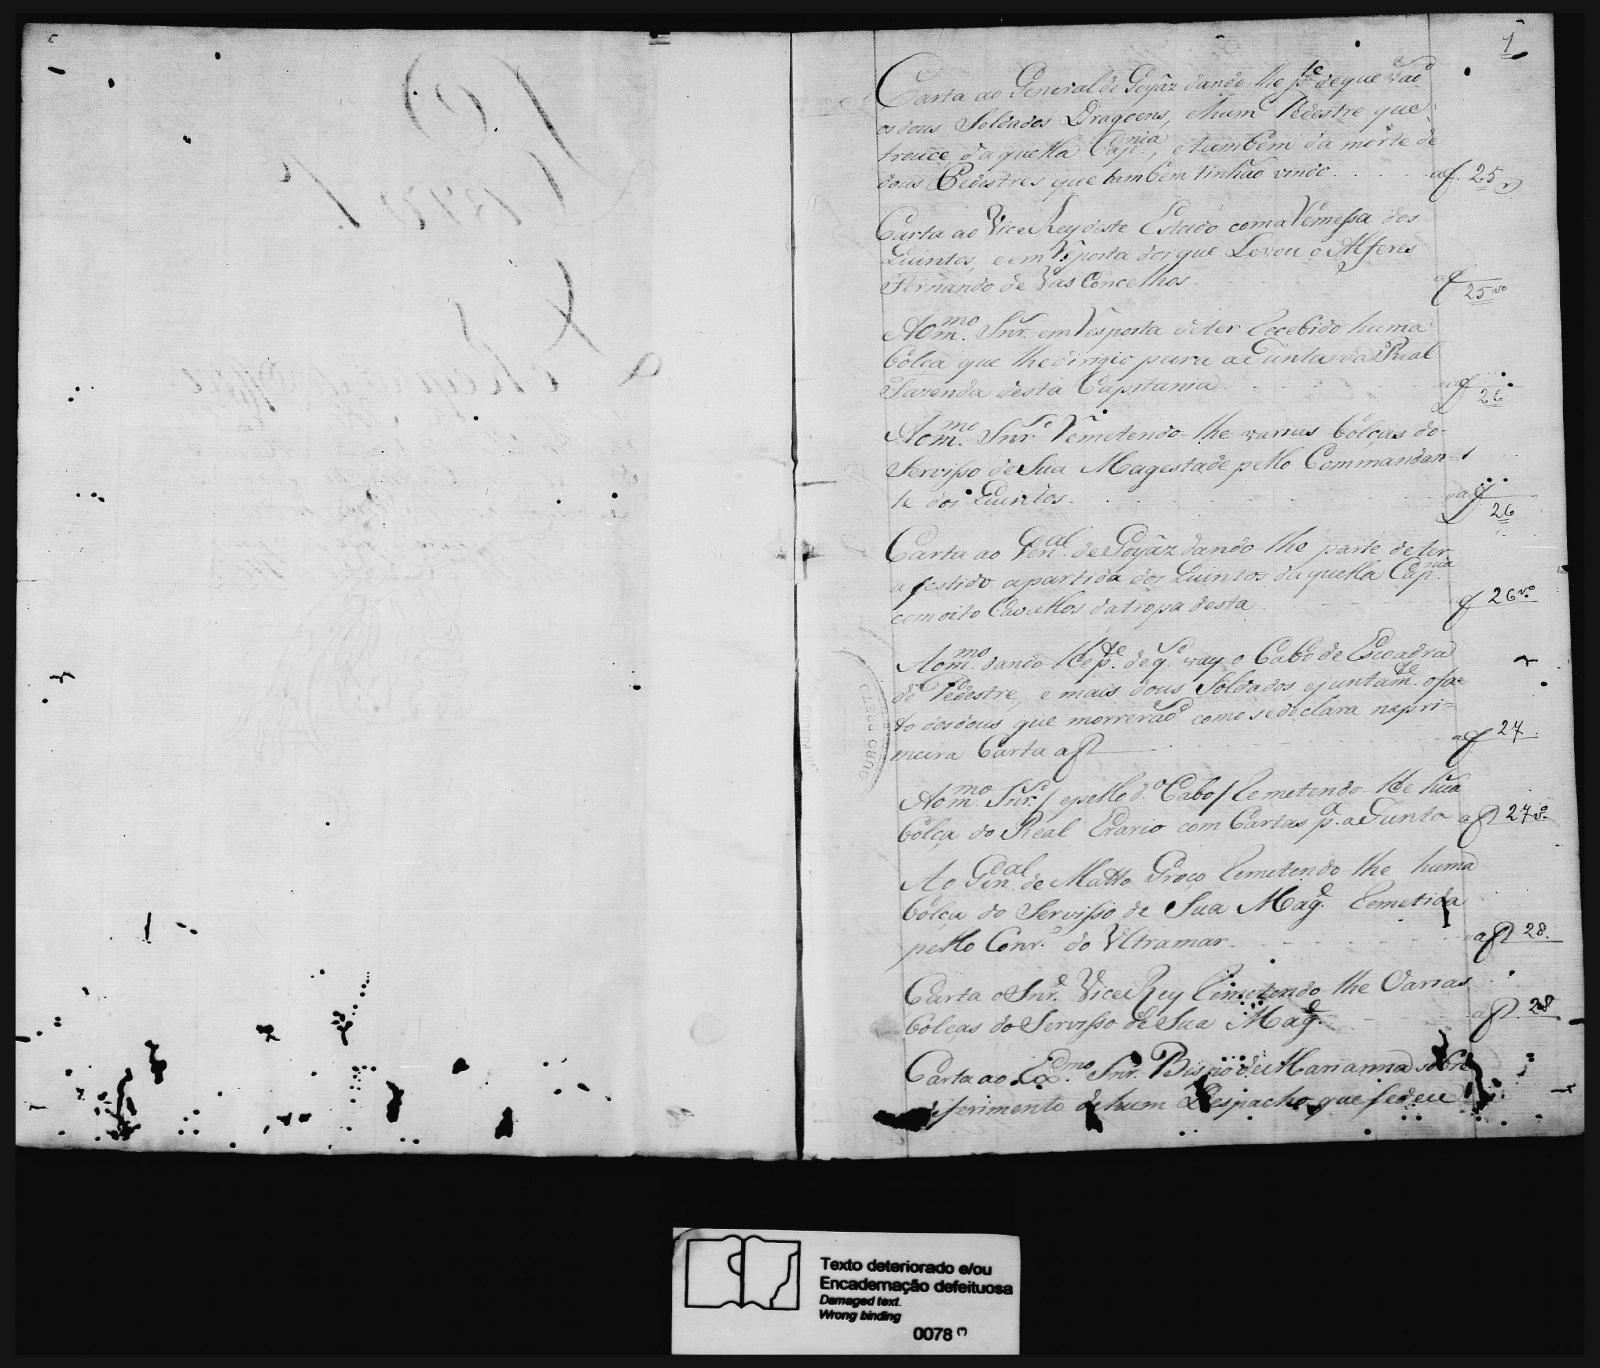 1
Carta ao General de Goyáz dando-lhe p.te de que vaõ
os dous Soldados Dragoens, e hum Pedestre que
trouce daquella Cap.nia, e tambem da morte de
dous Pedestres que tambem tinhaõ vindo. af. 25
Carta ao Vice Rey deste Estado com a Remessa dos
Quintos, e em Resposta dos que Levou o Alferes
Fernando de Vas Concelhos. af 25 vo
Ao m.mo Snr. em Resposta de ter Recebido huma
bolça que lhe dirigio para a Junta da Real
Fazenda desta Capitania af 26
Ao m.mo Snr. Remetendo-lhe varias bolças do
Servisso de Sua Magestade pello Commandan-
te dos Quintos. af 26
Carta ao Gen.eal de Goyáz dando-lhe parte de ter
a sestido a partida dos Quintos daquella Cap.nia
com oito Cavallos da tropa desta af 26 vo
Ao m.mo dando-lhe p.te de q. vay o Cabo de Escoadra
do Pedestre, e mais dous Soldados, e juntam.te o fa-
to dos dous que morreraõ como se declara na pri=
meira Carta af af 27
Ao m.mo Snr. / e pello d.o Cabo / Remetendo-lhe hũa
bolça do Real Erario com Cartas p.a a Junta af 27 vo
Ao Gen.eal de Matto Groço Remetendo lhe huma
bolça do Servisso de Sua Mag.e Remetida
pello Cons.o do Ultramar. af 28.
Carta o Snr. Vice Rey Remetendo lhe Varias
bolças do Servisso de Sua Mag.e af 28
Carta ao Ex.mo Snr. Bispo de Marianna sobre
deferimento de hum Despacho que se deu
OURO PRETO
Texto deteriorado e/ou
Encadernação defeituosa
Damaged text.
Wrong binding
0078 (*)